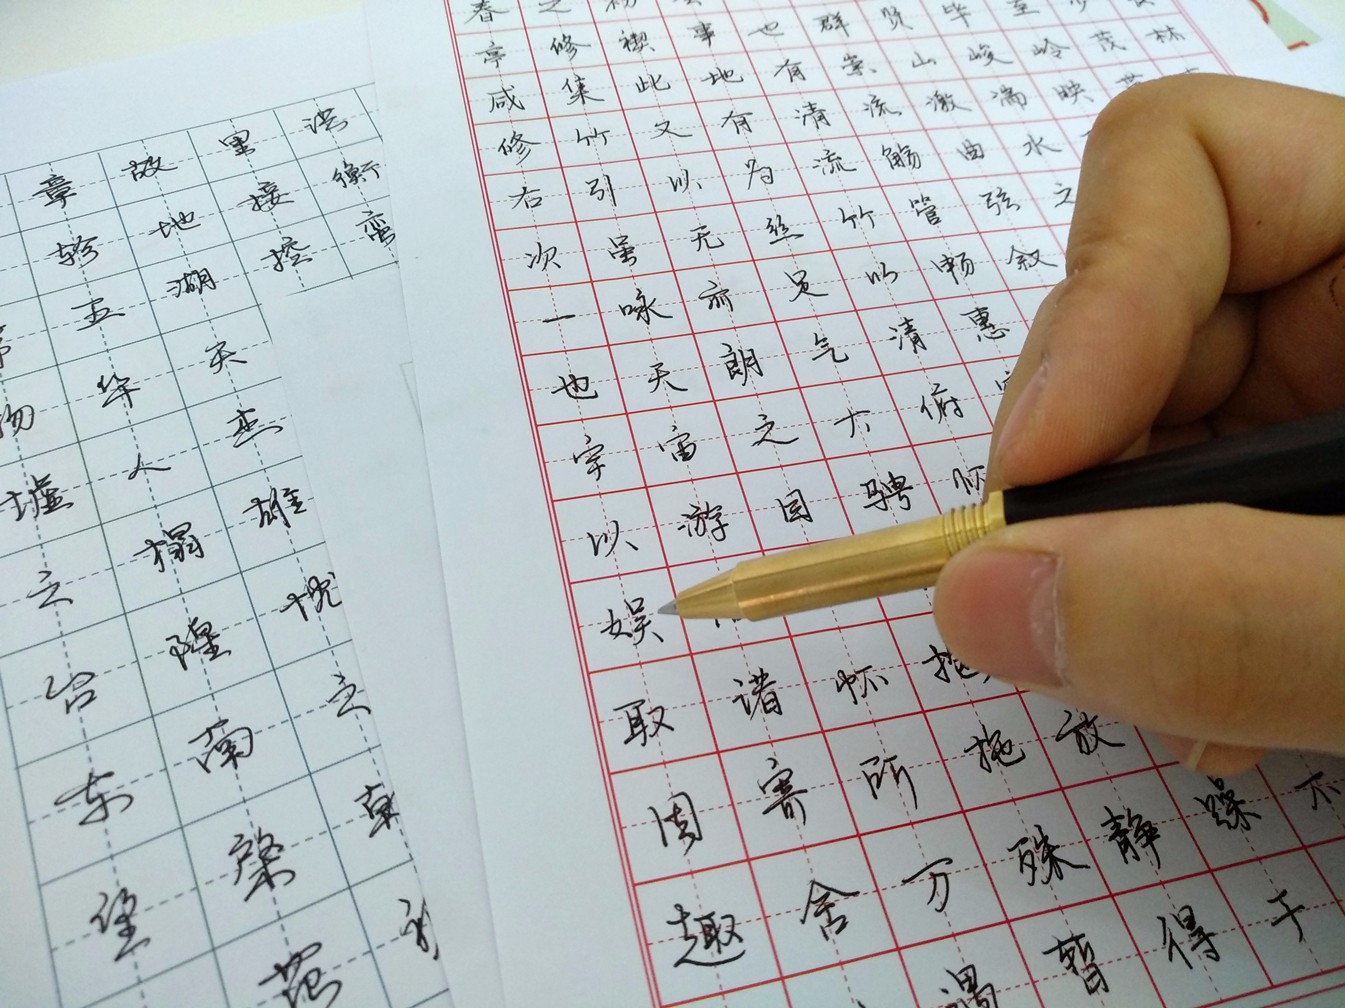 章 故 里 洪
轸 地 接 衡
五 湖 控 蛮
物 华 天
墟 人 杰
之 榻 雄
台 隍 枕
东 南 之
望 棨
范
春 之 初
亭 修 禊 事 也 群 贤 毕 至 少 长
咸 集 此 地 有 崇 山 峻 岭 茂 林
修 竹 又 有 清 流 激 湍 映 带
右 引 以 为 流 觞 曲 水
次 虽 无 丝 竹 管 弦 之
一 咏 亦 足 以 畅 叙
也 天 朗 气 清 惠
宇 宙 之 大 俯
以 游 目 骋
娱
取 诸 怀 抱
因 寄 所 拖 放
趣 舍 万 殊 静 躁 不
遇 暂 得 于